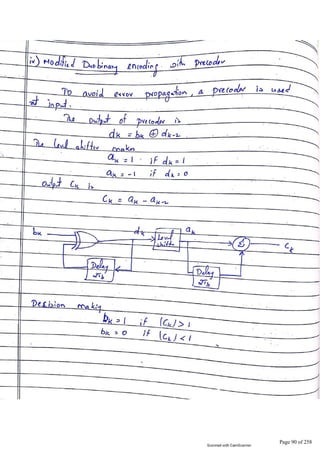 iv) Modified Duobinary encoding with precoder
To avoid error propagation, a precoder is used
at input.
The output of precoder is
dk = bk ⊕ dk-2
The level shifter makes
ak = 1 if dk = 1
ak = -1 if dk = 0
output Ck is
Ck = ak - ak-2
bk dk Level shift ak Σ Ck
Delay 2Tb Delay 2Tb
Decision making
bk = 1 if |Ck| > 1
bk = 0 if |Ck| < 1
Scanned with CamScanner
Page 90 of 258